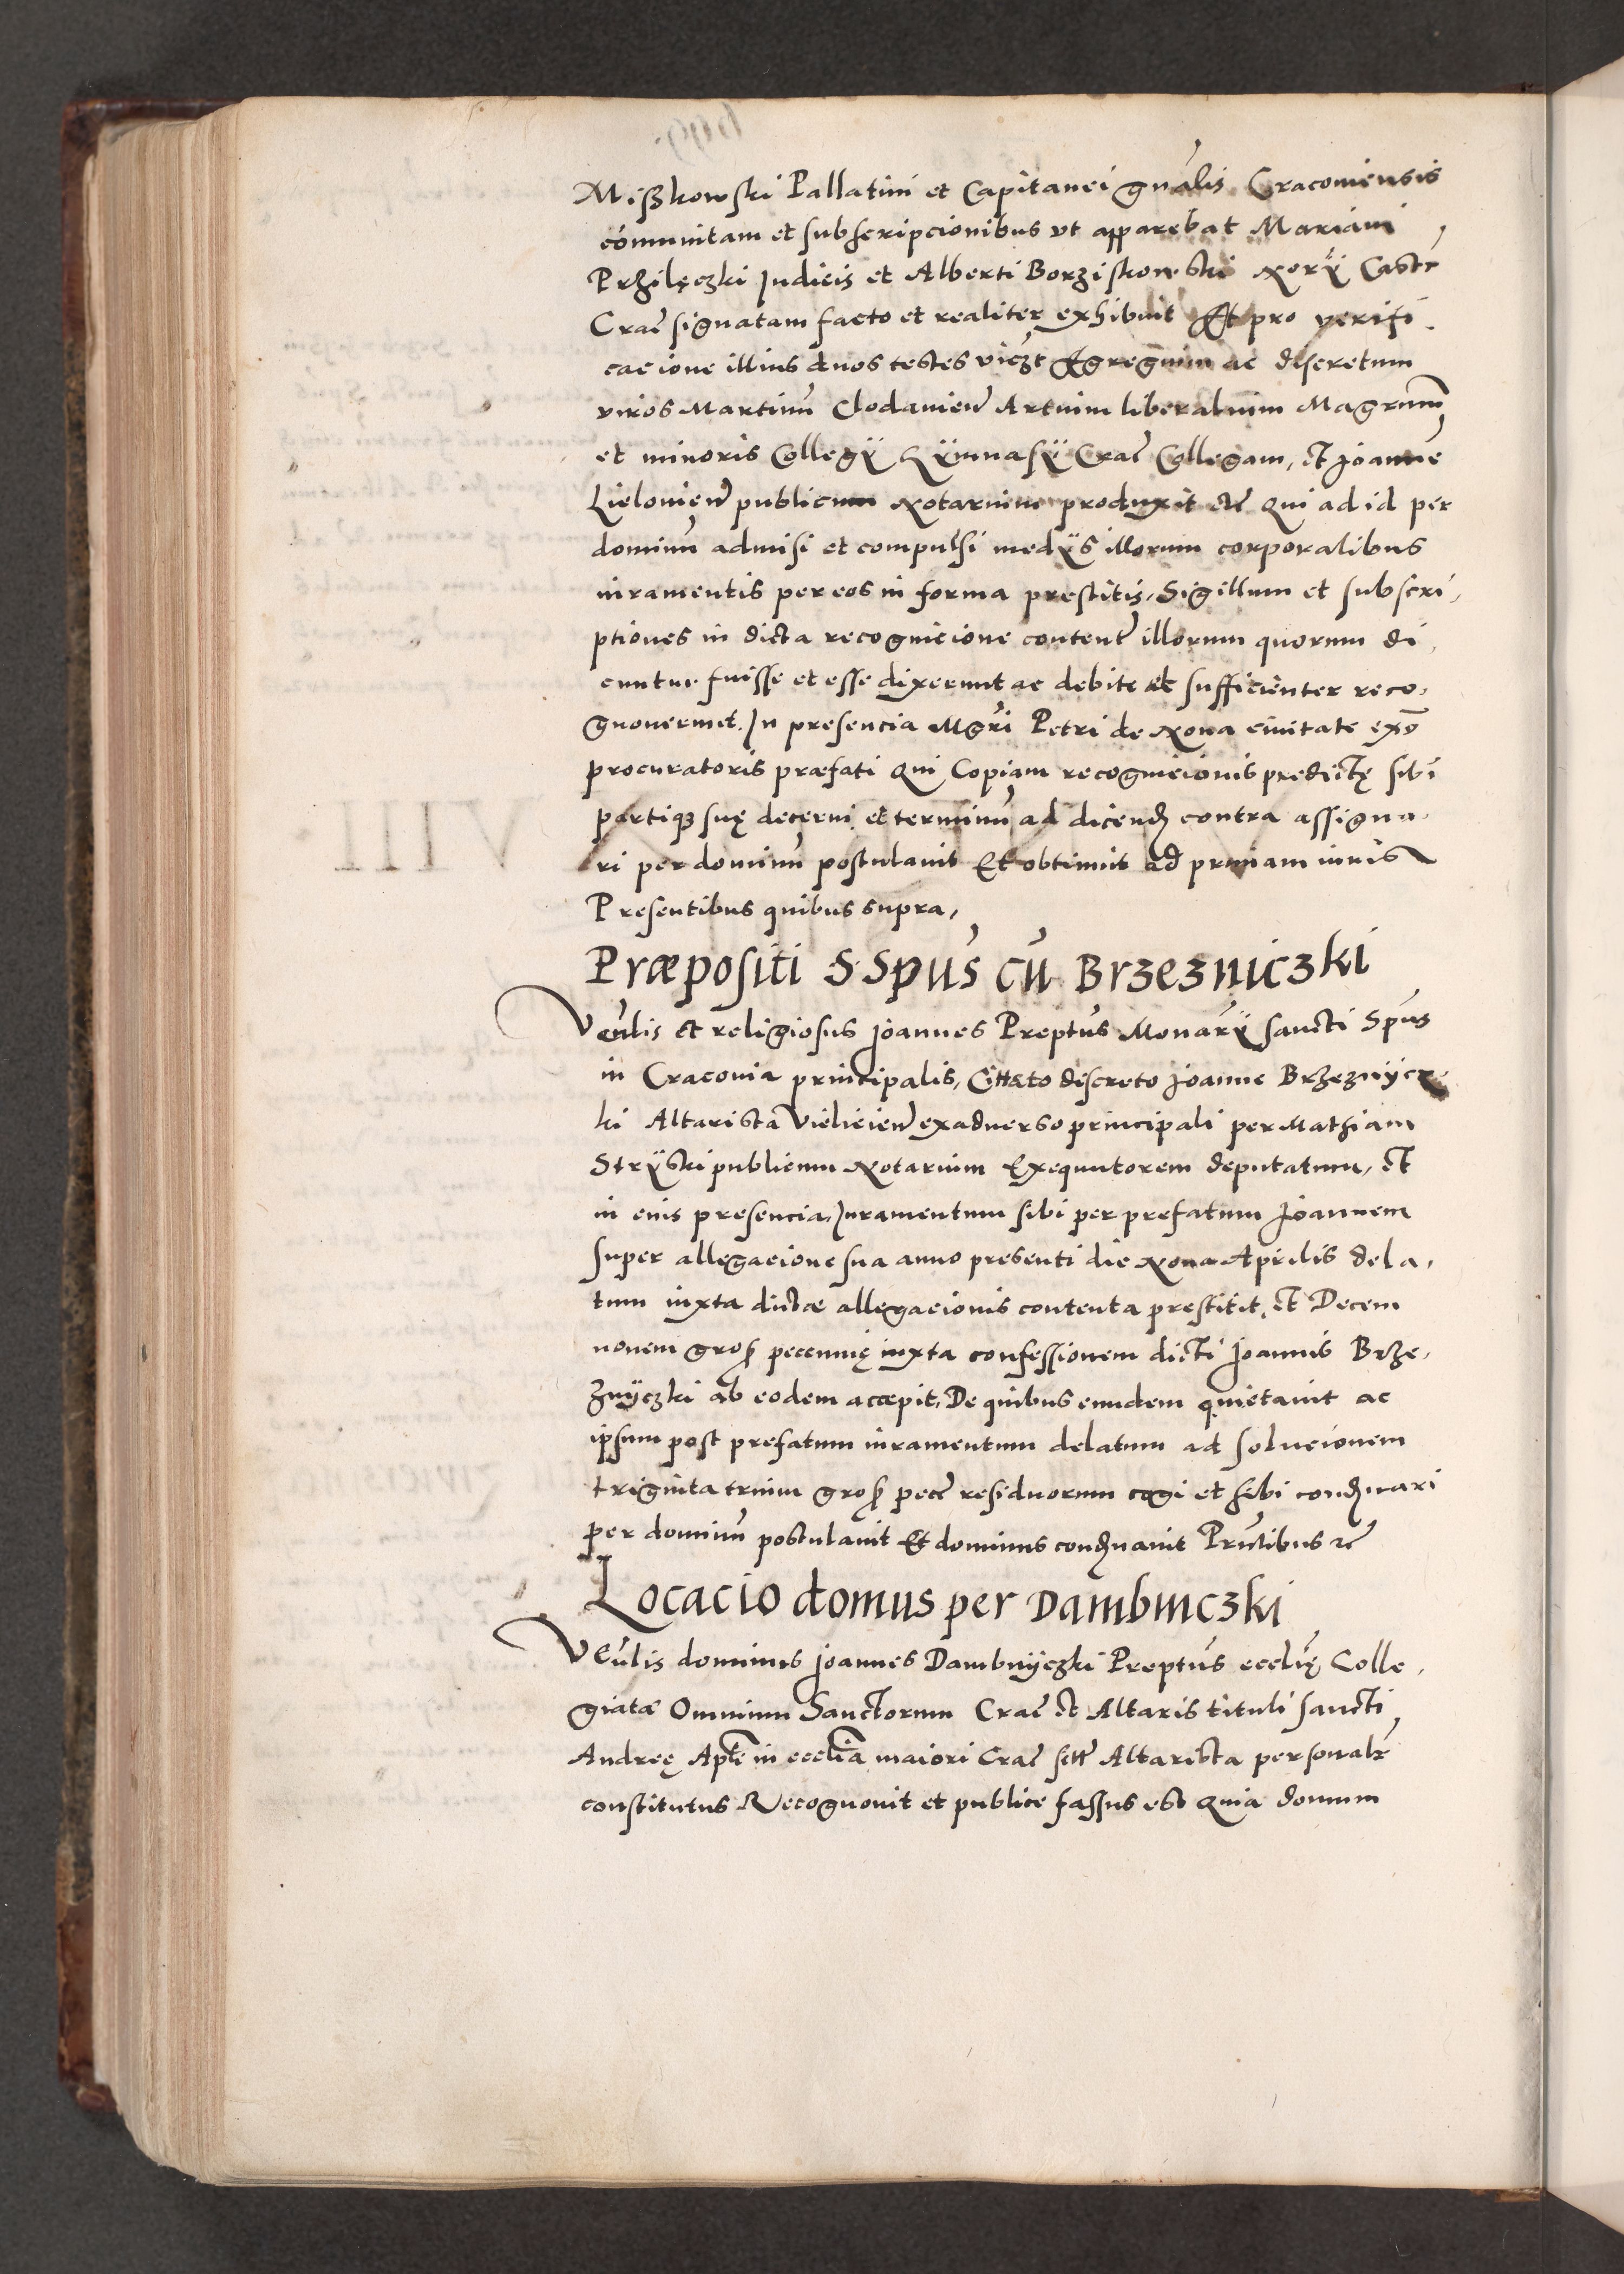 Mißkowski Pallatini et Capitanei gnalis Cracoviensis
comunitam et subscripcionibus ut apparebat Mariani
Przilęczki Judicis et Alberti Borziskowski Norÿ Castr
Crac signatam facto et realiter exhibuit Et pro verifi
cacione illius duos testes viczt Egregium ac discretum
viros Martinu Clodavien Artium liberalium Magrum
et minoris Collegÿ Gÿmnasÿ Crac Collegam, et Joanne
Lielovien publicum Notarium produxit etc Qui ad id per
dominu admisi et compulsi medÿs illorum corporalibus
iuramentis per eos in forma prestitis, Sigillum et subscri,
ptiones in dicta recognicione content illorum quorum di,
cuntur fuisse et esse dixerunt ac debite et sufficienter reco,
gnoverunt. In presencia Mgri Petri de Nova civitate exo
procuratoris præfati Qui Copiam recognicionis predictę sibi
partiqz suę decerni et terminu ad dicend contra assigna,
ri per dominu postulavit Et obtinuit ad primam iuris
Presentibus quibus supra,
Præpositi S Spus cu Brzezniczki
Venlis et religiosus Joannes Preptus Monarÿ sancti Spus
in Cracovia principalis, Cittato discreto Joanne Brzeznÿcz,
ki Altarista Vielicien exadverso principali per Mathiam
Strÿski publicum Notarium Exequutorem deputatum, et
in eius presencia, Juramentum sibi per prefatum Joannem
super allegacione sua anno presenti die Nona Aprilis dela,
tum iuxta dictæ allegacionis contenta prestitit, et Decem
novem gros peccunię iuxta confessionem dicti Joannis Brze,
znÿczki ab eodem accepit, De quibus eundem quietavit ac
ipsum post prefatum iuramentum delatum ad solucionem
triginta trium gros pecc residuorum cogi et sibi condnari
per dominu postulavit Et dominus condnavit Prntibus etc
Locacio domus per Dambniczki
Venlis dominus Joannes Dambnÿczki Preptus ecclię Colle,
giatæ Omnium Sanctorum Crac et Altaris tituli sancti
Andreę Apli in ecclia maiori Crac sitt Altarista personalr
constitutus Recognovit et publice fassus est Quia domum